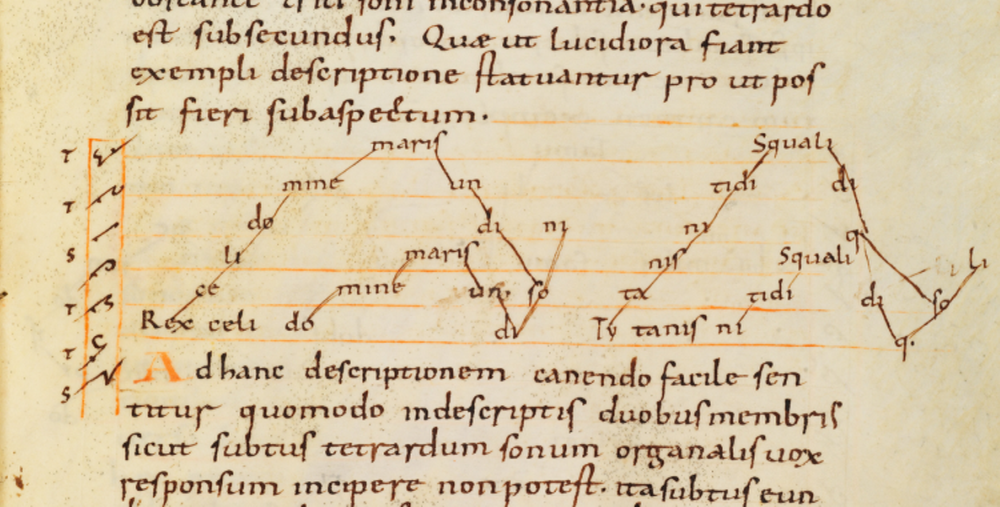 est subsecundus. Quæ ut lucidiora fiant
exempli descriptione statuantur pro ut pos
sit fieri subaspectum.
T maris Squali
mine un tidi di
T do di ni ni q
S li maris nis Squali li
T ce mine un so ta tidi di so
Rex celi do di Ty tanis ni q.
T
S
Ad hanc descriptionem canendo facile sen
titur quomodo indescriptis duobusmembris
sicut subtus tetrardum sonum organalis vox
responsum incipere non potest. ita subtus eun